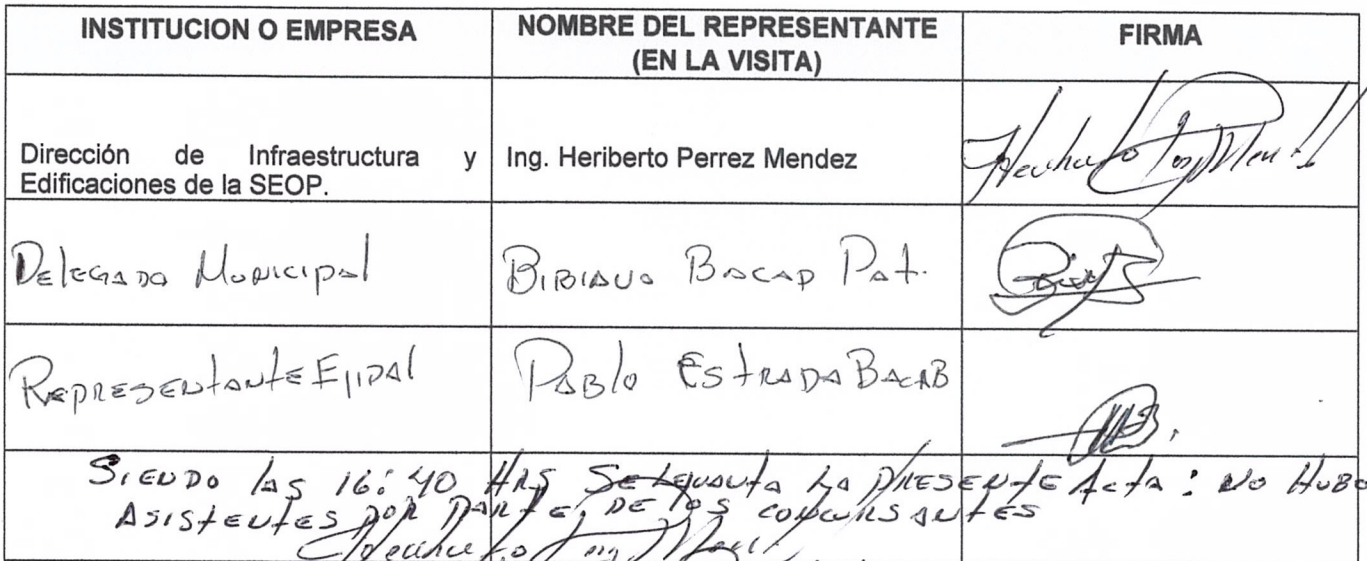 INSTITUCION O EMPRESA
NOMBRE DEL REPRESENTANTE
(EN LA VISITA)
FIRMA
Dirección de Infraestructura y
Edificaciones de la SEOP.
Ing. Heriberto Perrez Mendez
DELEGADO MUNICIPAL
BIBIANO BACAP PAT.
REPRESENTANTE EJIDAL
PABLO ESTRADA BACAB
SIENDO LAS 16:40 HRS SE LEVANTA LA PRESENTE ACTA: NO HUBO
ASISTENTES POR PARTE DE LOS CONCURSANTES